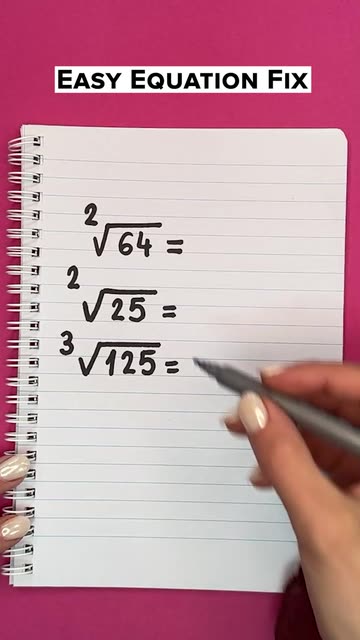 EASY EQUATION FIX
²√64 =
²√25 =
³√125 =